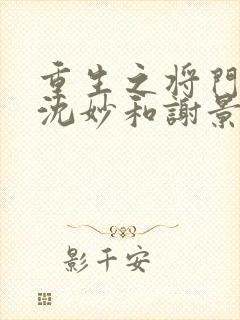 重生之将門
沈妙和謝景
影千安